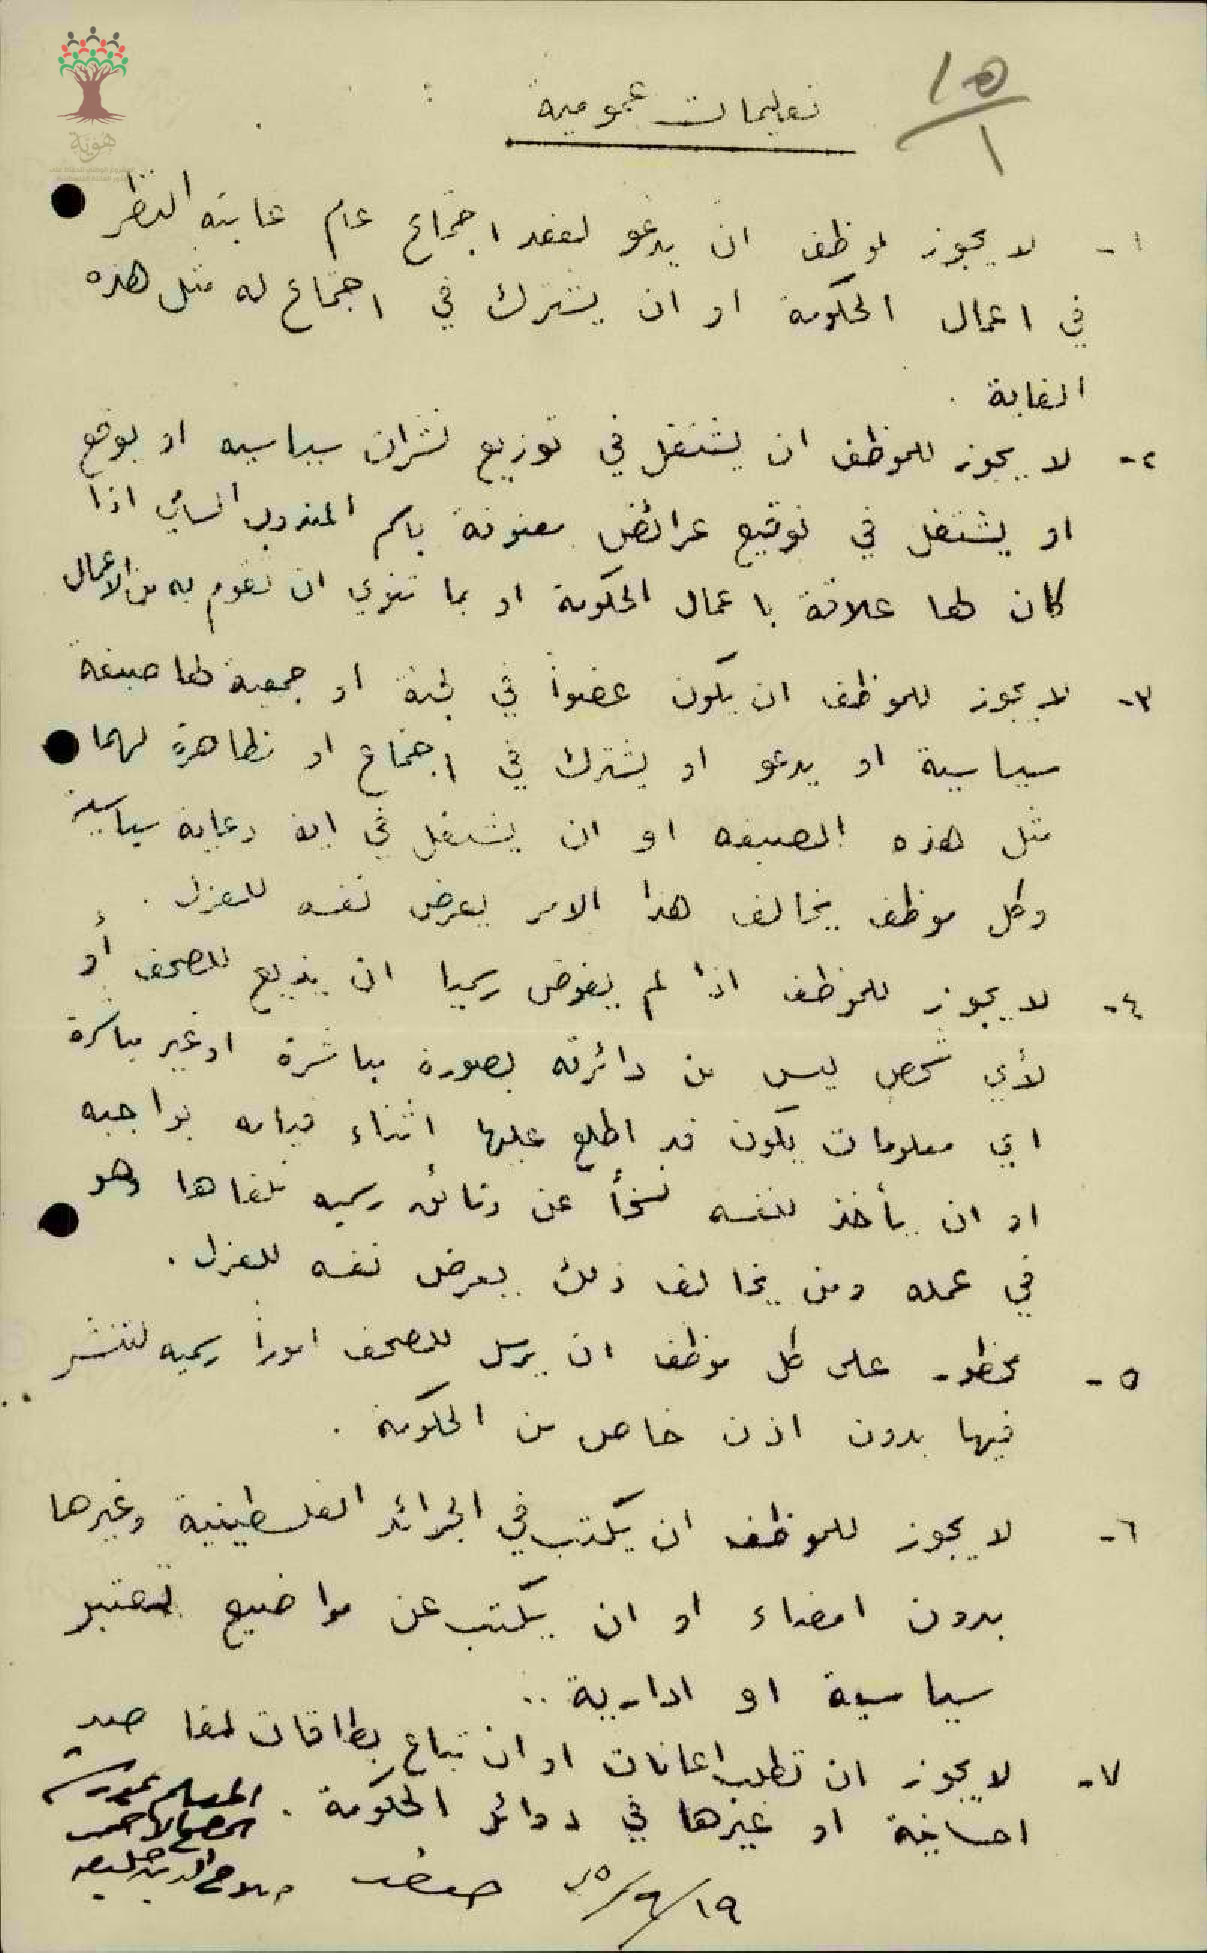 هوية
١٥
١
تعليمات عمومية
١- لا يجوز لموظف ان يدعو لعقد اجتماع عام غايته النظر
في اعمال الحكومة او ان يشترك في اجتماع له مثل هذه
الغاية .
٢- لا يجوز للموظف ان يشتغل في توزيع نشرات سياسيه او يوقع
او يشتغل في توقيع عرائض معنونة باسم المندوب السامي اذا
كان لها علاقة باعمال الحكومة او بما تنوي ان تقوم به من الاعمال
٣- لا يجوز للموظف ان يكون عضواً في لجنة او جمعية لها صبغة
سياسية او يدعو او يشترك في اجتماع او تظاهرة لهما
مثل هذه الصبغه او ان يشتغل في اية دعاية سياسية
وكل موظف يخالف هذا الامر يعرض نفسه للعزل .
٤- لا يجوز للموظف اذا لم يفوض رسميا ان يذيع للصحف أو
لأي شخص ليس من دائرته بصورة مباشرة او غير مباشرة
اي معلومات يكون قد اطلع عليها اثناء قيامه بواجبه
او ان يأخذ لنفسه نسخاً عن وثائق رسميه تلقاها وهو
في عمله ومن يخالف ذلك يعرض نفسه للعزل .
٥- محظور على كل موظف ان يرسل للصحف اموراً رسميه لتنشر
فيها بدون اذن خاص من الحكومة .
٦- لا يجوز للموظف ان يكتب في الجرائد الفلسطينية وغيرها
بدون امضاء او ان يكتب عن مواضيع تعتبر
سياسية او ادارية ..
٧- لا يجوز ان تطلب اعانات او ان تباع بطاقات لمقاصد
احسانية او غيرها في دوائر الحكومة .
المعلم بمدرسة
صلاح الدين
صفد ١٩/٩/٢٥